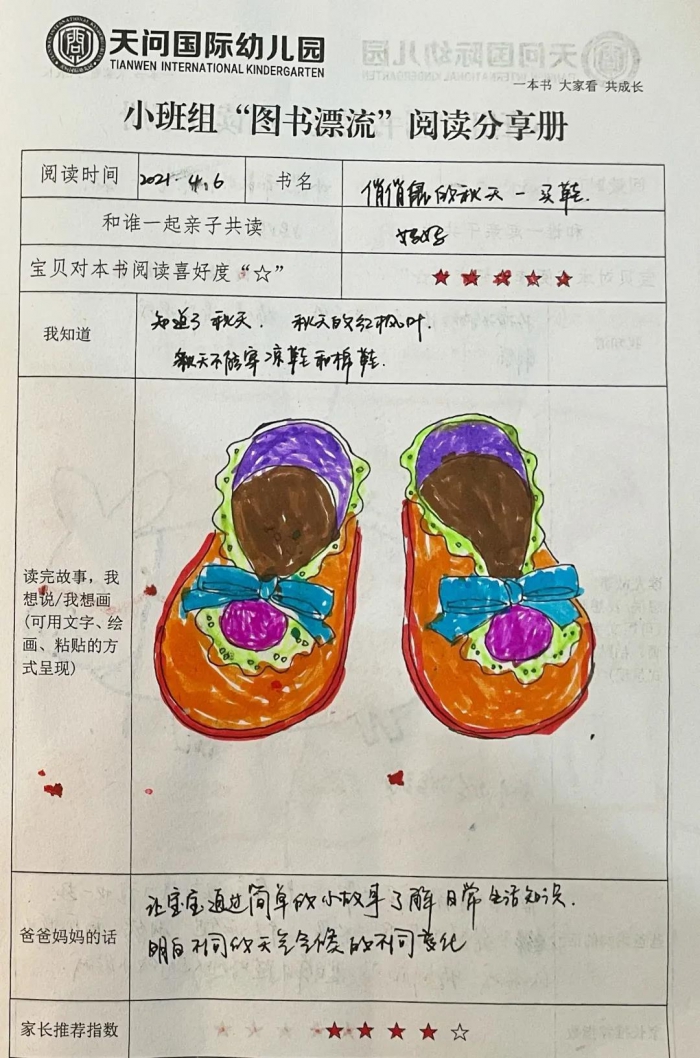 天问国际幼儿园
TIANWEN INTERNATIONAL KINDERGARTEN
一本书 大家看 共成长
小班组“图书漂流”阅读分享册
阅读时间 2021.4.6 书名 俏俏鼠的秋天一买鞋.
和谁一起亲子共读 妈妈
宝贝对本书阅读喜好度“☆” ★★★★★
我知道
知道了秋天. 秋天的红枫叶.
秋天不能穿凉鞋和棉鞋.
读完故事，我
想说/我想画
(可用文字、绘
画、粘贴的方
式呈现)
爸爸妈妈的话
让宝宝通过简单的小故事了解日常生活知识.
明白不同的天气气候的不同变化
家长推荐指数 ★★★★☆